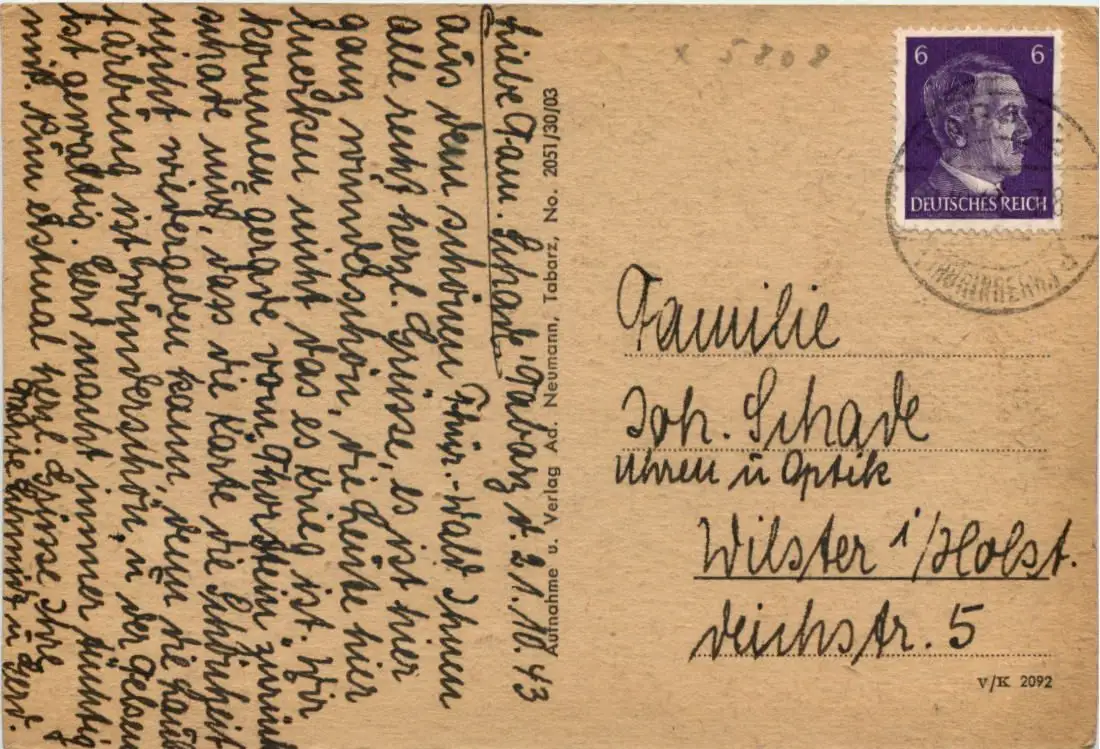 Liebe Fam. Schade! Tabarz d. 21.10.43
aus dem schönen Thür.-Wald Ihnen
alle recht herzl. Grüsse, es ist hier
ganz wunderschön, die Leute hier
merken nicht das es Krieg ist. Wir
kommen gerade vom Thorstein zurück
schade nur, dass die Karte die Schönheit
nicht wiedergeben kann, denn die Laub
färbung ist wunderschön, u der
ist gewaltig. Gerd macht immer tüchtig
mit. Nun erstmal herzl. Grüsse Ihre
u Gerd.
Aufnahme u. Verlag Ad. Neumann, Tabarz, No. 2051/30/03
x 5808
6 6
DEUTSCHES REICH
Familie
Joh. Schade
Uhren u Optik
Wilster i/Holst.
Deichstr. 5
V/K 2092